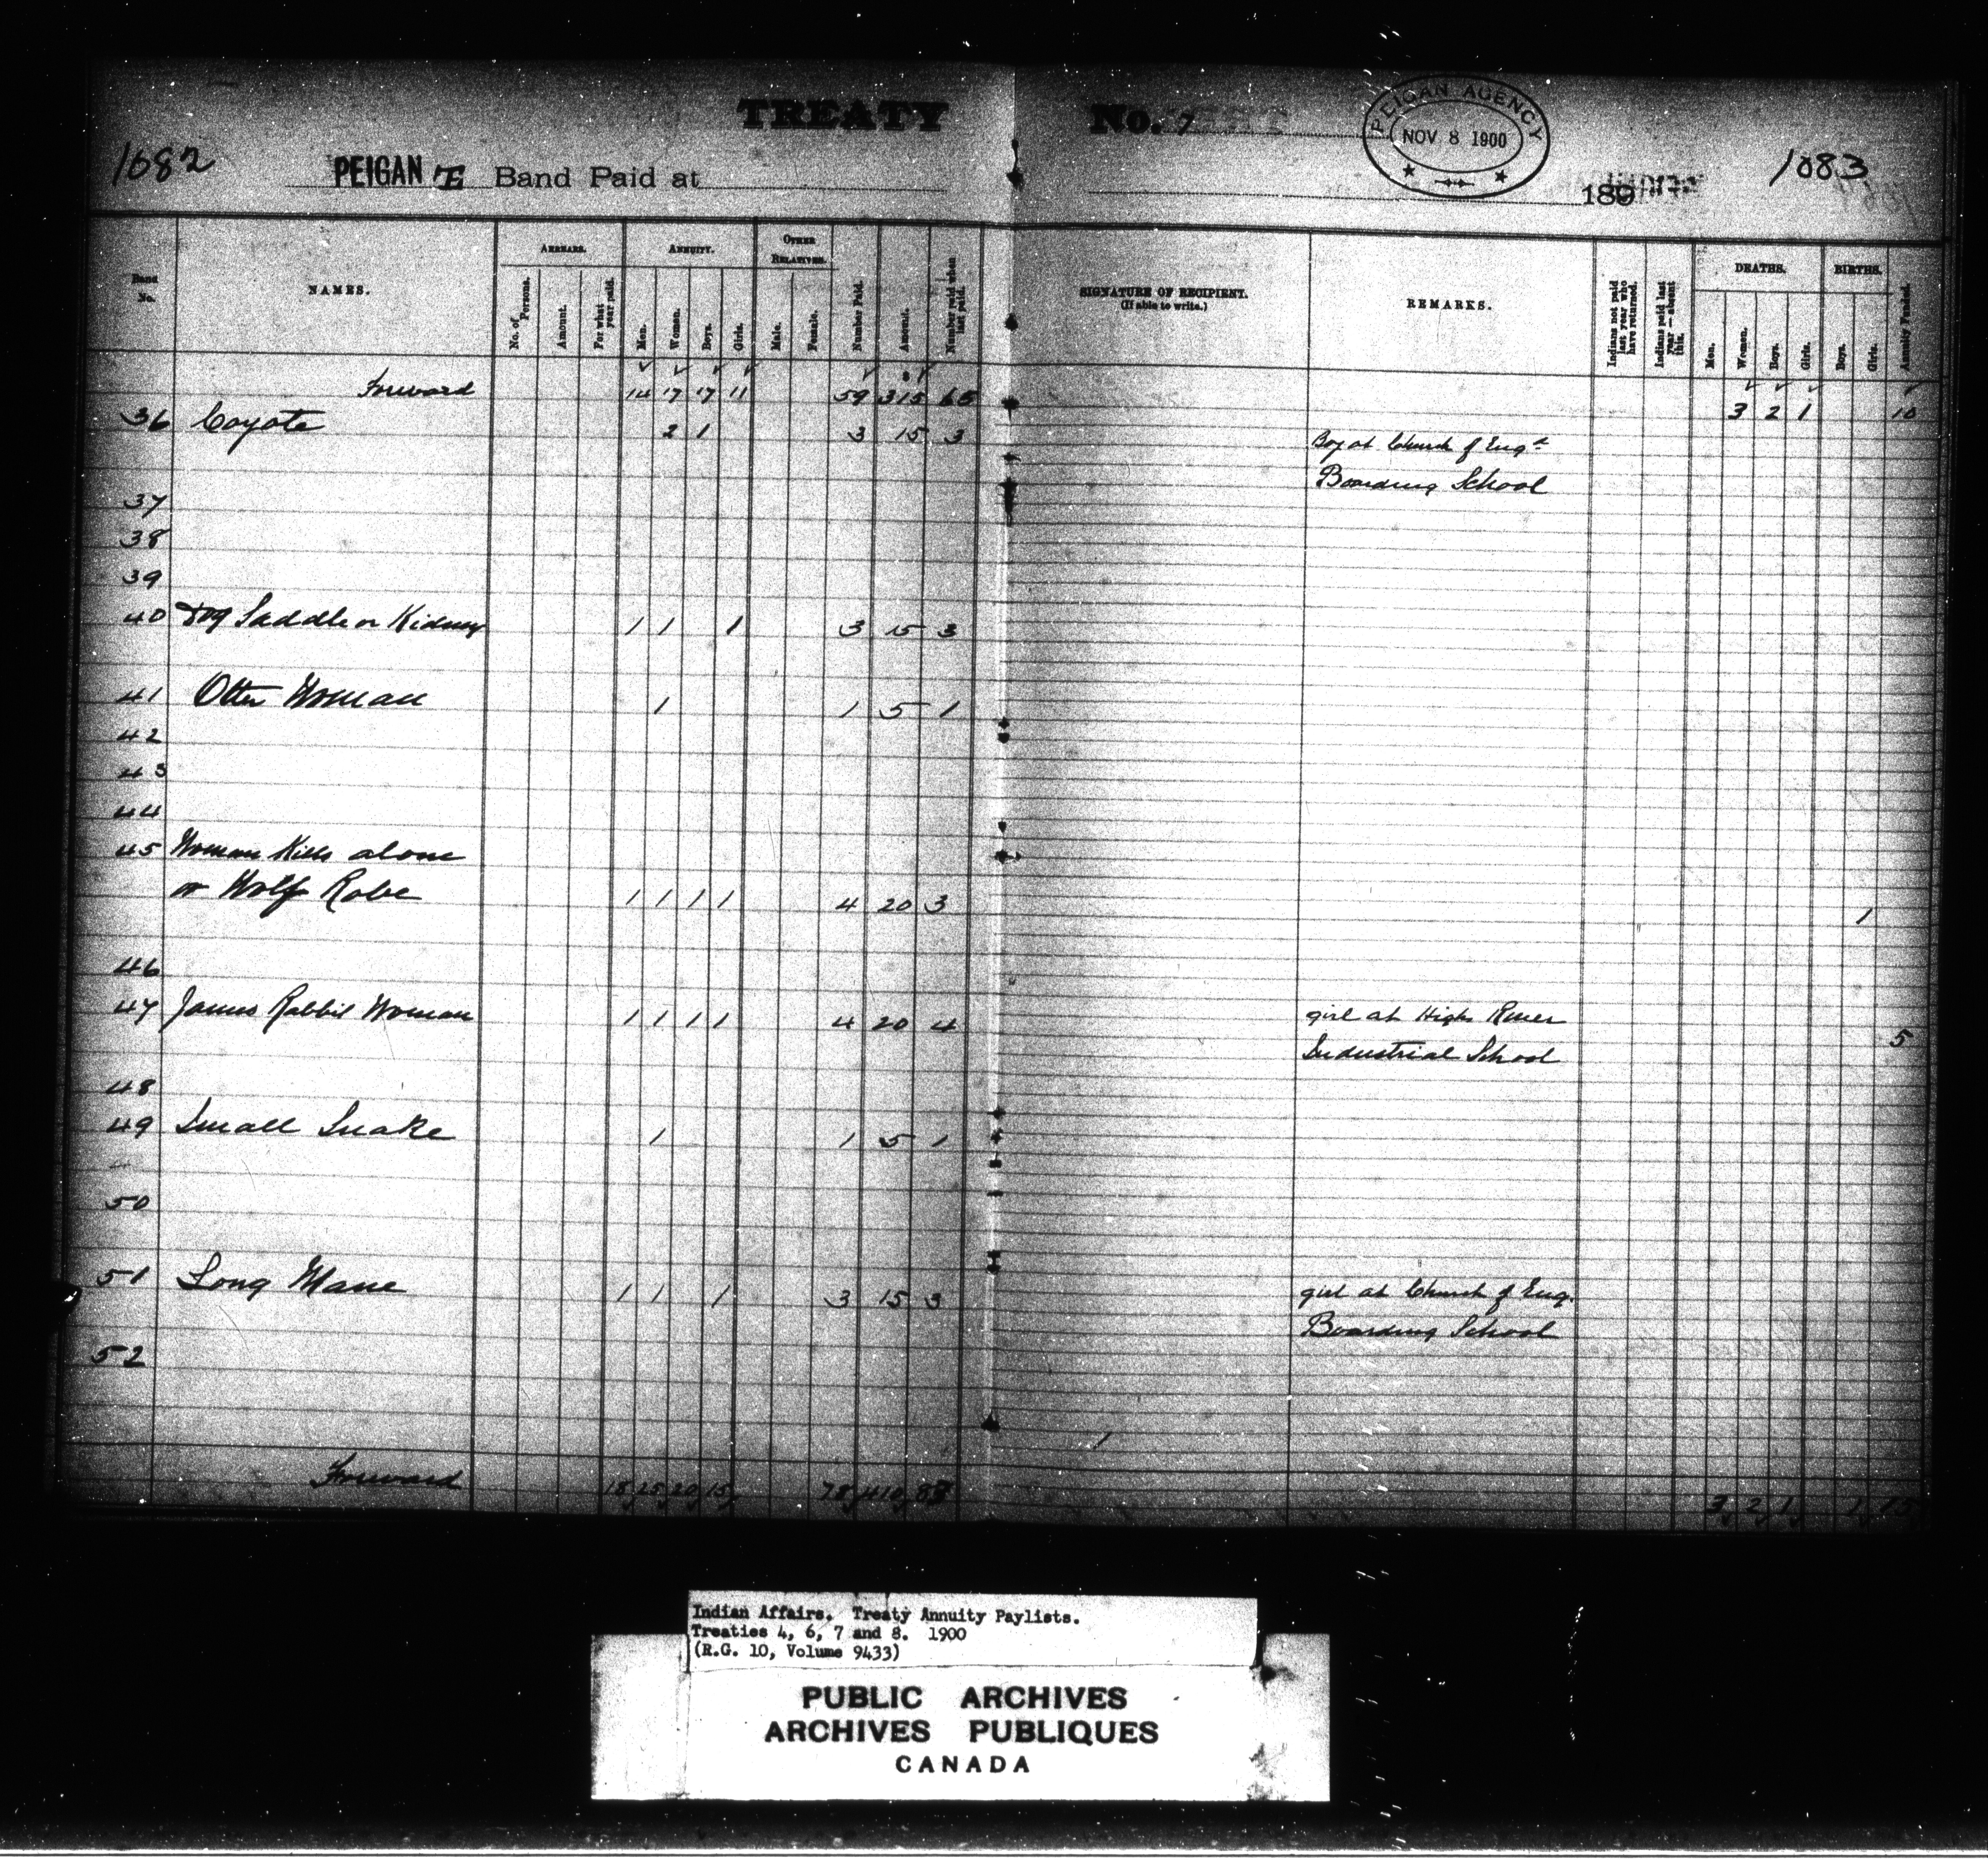 TREATY No. 7
PEIGAN AGENCY
NOV 8 1900
1082
PEIGAN "E" Band Paid at
189
1083
Band No.
NAMES.
ARREARS.
No. of Persons.
Amount.
For what year paid.
ANNUITY.
Men.
Women.
Boys.
Girls.
OTHER RELATIVES.
Male.
Female.
Number Paid.
Amount.
Number paid when last paid.
SIGNATURE OF RECIPIENT.
(If able to write.)
REMARKS.
Indians not paid last year who have returned.
Indians paid last year — absent this.
DEATHS.
Men.
Women.
Boys.
Girls.
BIRTHS.
Boys.
Girls.
Annuity Funded.
Forward 14 17 17 11 59 315 65 3 2 1 10
36 Coyote 2 1 3 15 3 Boy at Church of Engd
Boarding School
37
38
39
40 Dog Saddle or Kidney 1 1 1 3 15 3
41 Otter Woman 1 1 5 1
42
43
44
45 Woman Kills alone
or Wolf Robe 1 1 1 1 4 20 3 1
46
47 James Rabbit Woman 1 1 1 1 4 20 4 girl at High River
Industrial School 5
48
49 Small Snake 1 1 5 1
50
51 Long Mane 1 1 1 3 15 3 girl at Church of Eng.
Boarding School
52
Forward 18 25 20 15 78 410 83 3 2 1 1 15
Indian Affairs. Treaty Annuity Paylists.
Treaties 4, 6, 7 and 8. 1900
(R.G. 10, Volume 9433)
PUBLIC ARCHIVES
ARCHIVES PUBLIQUES
CANADA